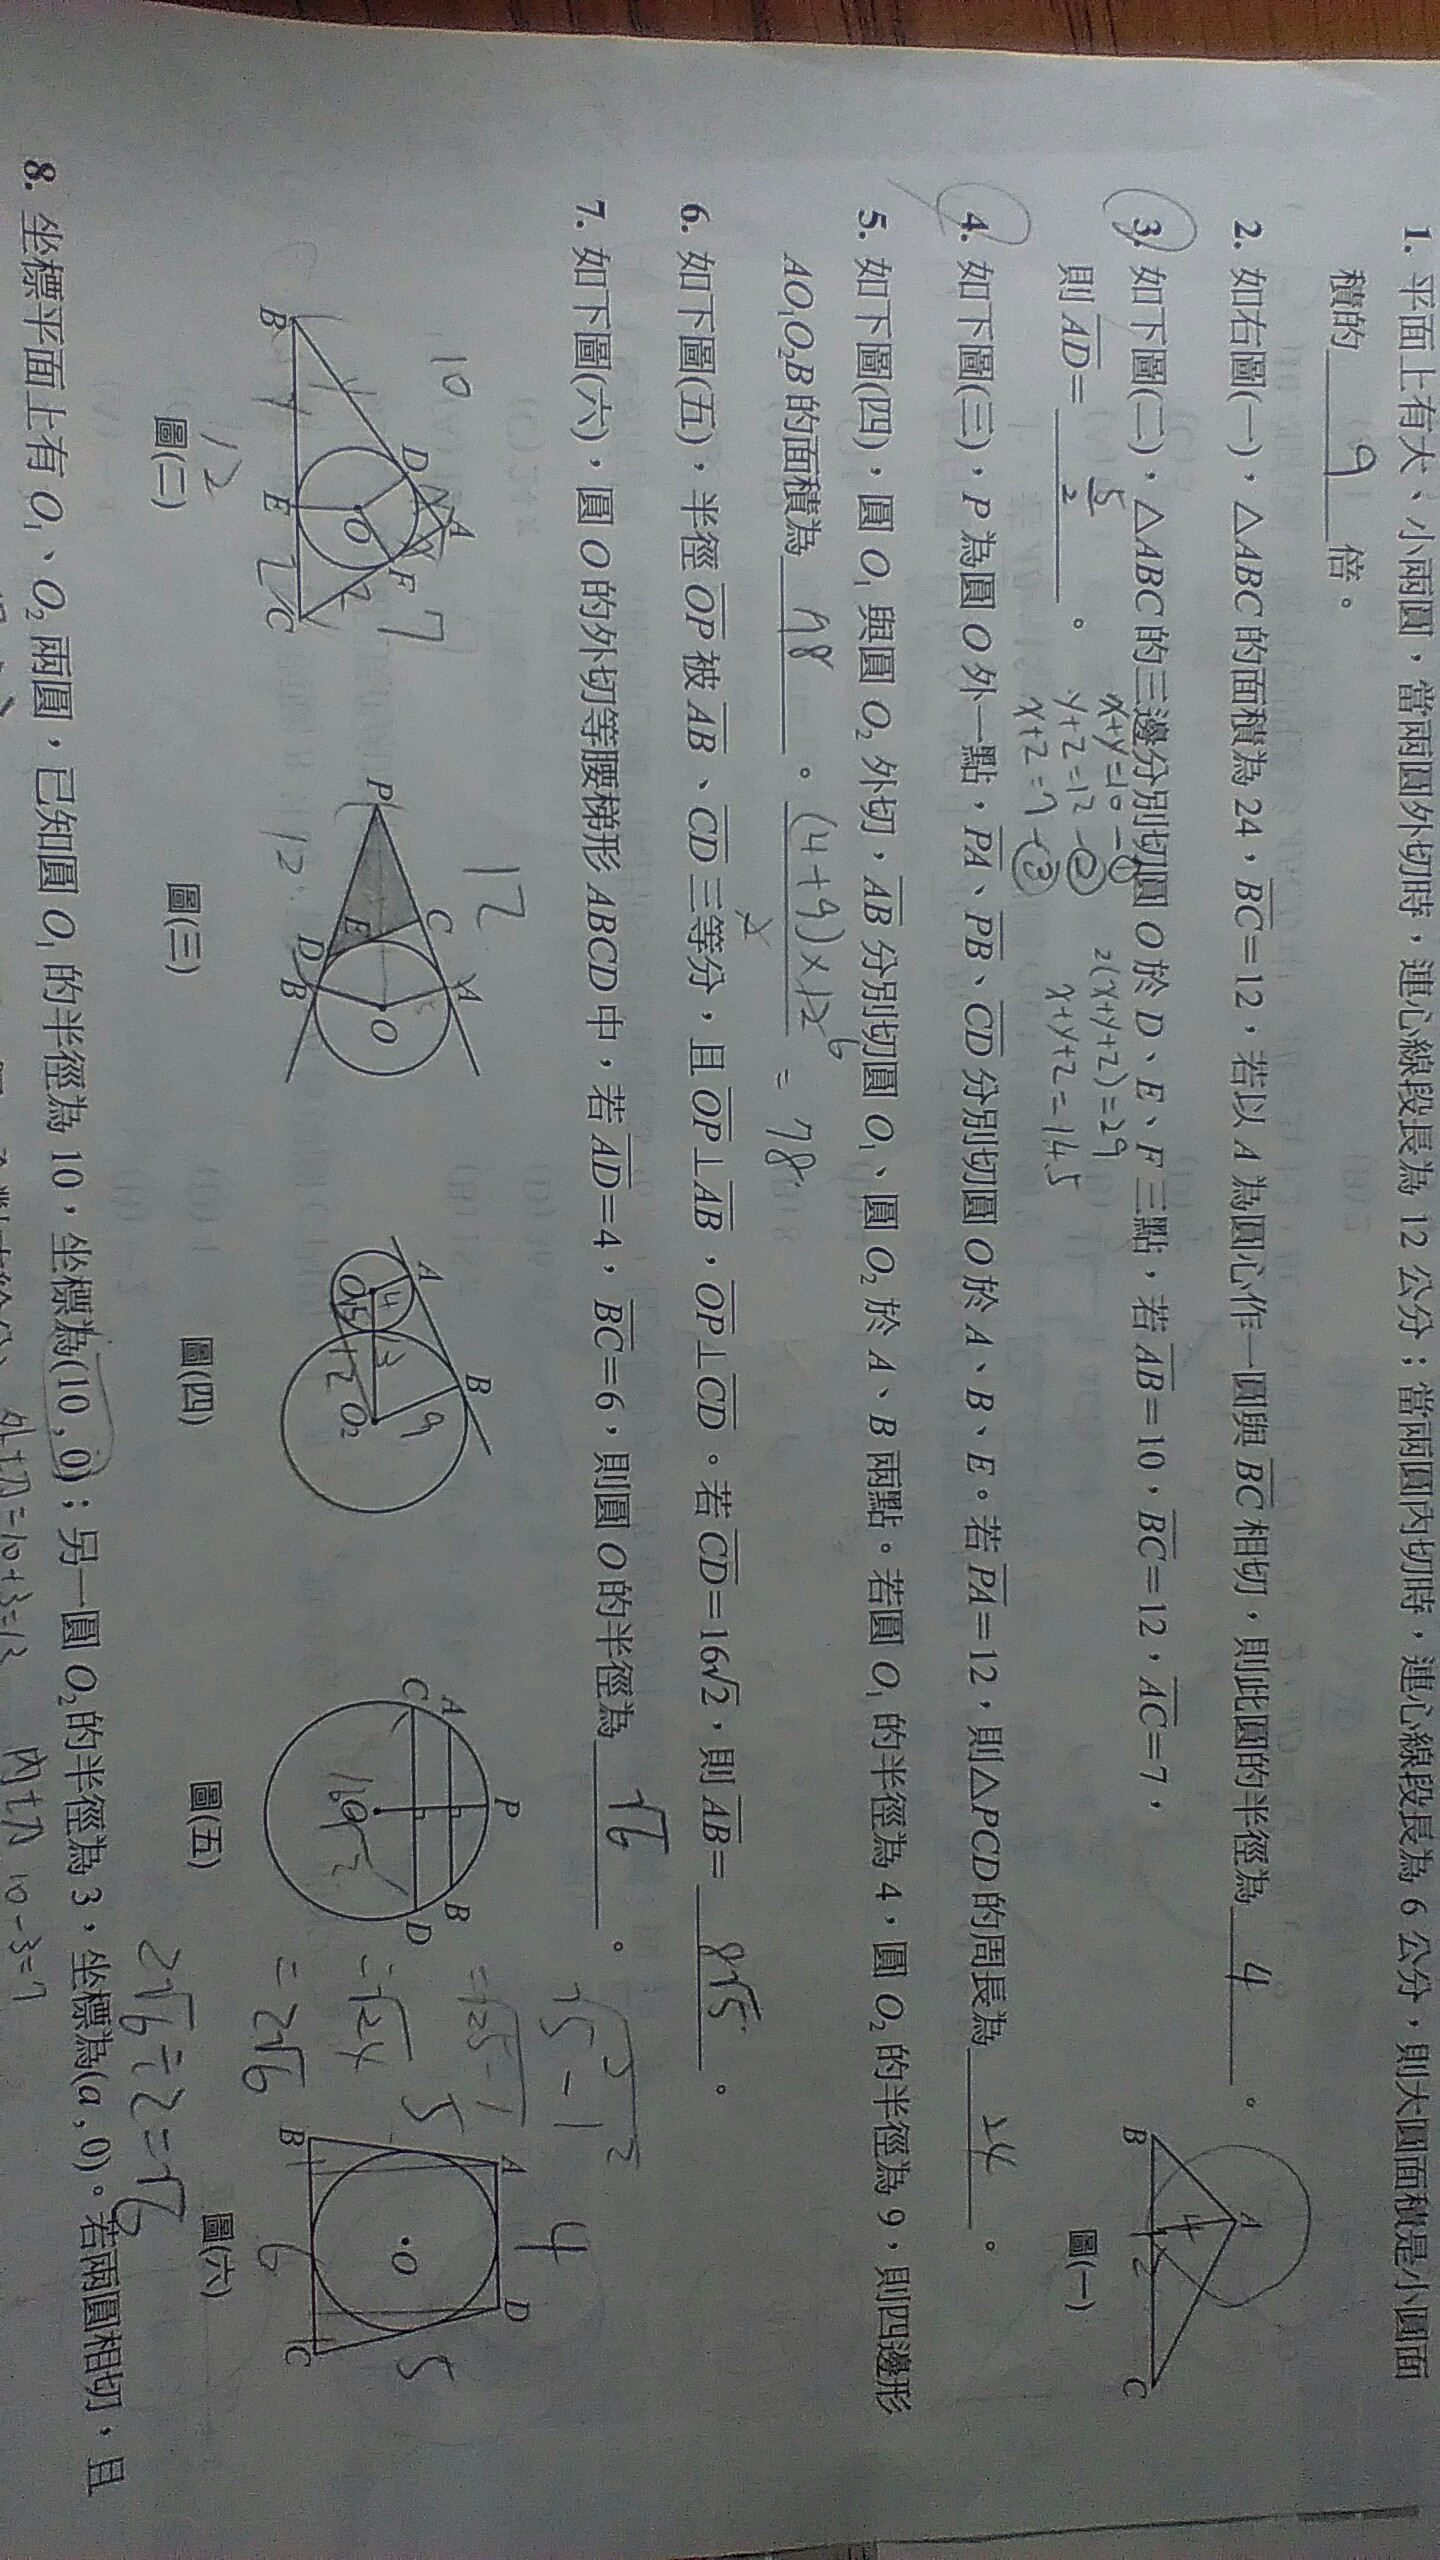 1. 平面上有大、小兩圓，當兩圓外切時，連心線段長為 12 公分；當兩圓內切時，連心線段長為 6 公分，則大圓面積是小圓面
積的 9 倍。
2. 如右圖(一)，△ABC 的面積為 24，BC=12，若以 A 為圓心作一圓與 BC 相切，則此圓的半徑為 4 。
3. 如下圖(二)，△ABC 的三邊分別切圓 O 於 D、E、F 三點，若 AB=10，BC=12，AC=7，
則 AD= 5/2 。
x+y=10 -①
y+z=12 -②
x+z=7 -③
2(x+y+z)=29
x+y+z=14.5
4. 如下圖(三)，P 為圓 O 外一點，PA、PB、CD 分別切圓 O 於 A、B、E。若 PA=12，則△PCD 的周長為 24 。
5. 如下圖(四)，圓 O₁ 與圓 O₂ 外切，AB 分別切圓 O₁、圓 O₂ 於 A、B 兩點。若圓 O₁ 的半徑為 4，圓 O₂ 的半徑為 9，則四邊形
AO₁O₂B 的面積為 78 。 (4+9)×12 6 / 2 = 78
6. 如下圖(五)，半徑 OP 被 AB、CD 三等分，且 OP⊥AB，OP⊥CD。若 CD=16√2，則 AB= 8√5 。
7. 如下圖(六)，圓 O 的外切等腰梯形 ABCD 中，若 AD=4，BC=6，則圓 O 的半徑為 √6 。
√5²-1²
=√25-1
=√24
=2√6
2√6÷2=√6
A
B
C
4
圖(一)
A
B
C
D
E
F
O
10
12
7
圖(二)
P
A
B
C
D
E
O
12
12
圖(三)
A
B
O₁
O₂
4
9
12
圖(四)
P
A
B
C
D
圖(五)
A
B
C
D
O
4
5
5
6
圖(六)
8. 坐標平面上有 O₁、O₂ 兩圓，已知圓 O₁ 的半徑為 10，坐標為(10 , 0)；另一圓 O₂ 的半徑為 3，坐標為(a , 0)。若兩圓相切，且
外切=10+3=13
內切 10-3=7